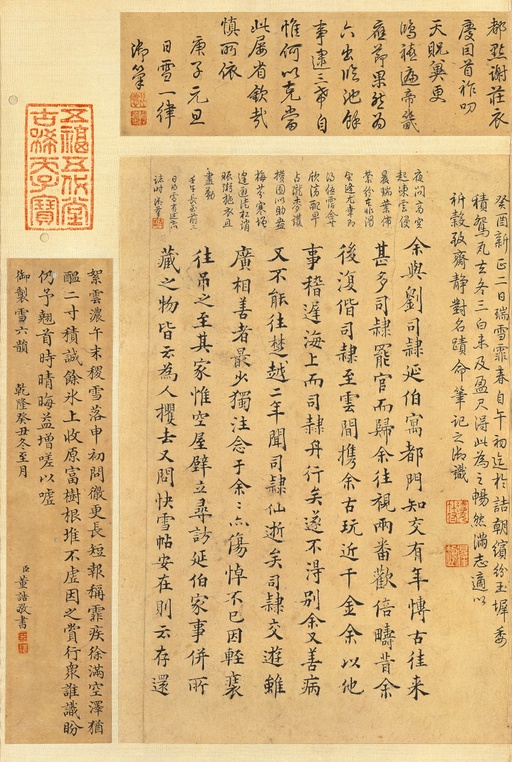 都點謝莊衣
慶因首祚叨
天貺冀更
鴻禧遍帝畿
應節果能為
六出臨池餘
事逮三希自
惟何以克當
此屢省欽哉
慎所依
庚子元旦
日雪一律
御筆
癸酉新正二日瑞雪霏春自午初迄於詰朝繽紛玉墀委
積鴛瓦去冬三白未及盈尺得此為之暢然滿志適以
祈穀致齋靜對名蹟命筆記之御識
夜間高空
起凍雲侵
晨瑞葉佈
余與劉司隸延伯寓都門知交有年博古往來
甚多司隸罷官而歸余往視兩番歡倍疇昔余
後復偕司隸至雲間攜余古玩近千金余以他
事稽遲海上而司隸舟行矣遂不得別余又善病
又不能往楚越二年聞司隸仙逝矣司隸交遊雖
廣相善者最少獨注念于余余亦傷悼不已因輕裝
往吊之至其家惟空屋壁立尋訪延伯家事併所
藏之物皆云為人攫去又問快雪帖安在則云存還
五福五代堂
古稀天子寶
絮雲濃午末稷雪落申初問徹更長短報稱霏疾徐滿空澤猶
醞二寸積誠餘氷上收原富樹根堆不虛因之賞行衆誰識盼
仍予翹首時晴晦益增嗟以噓
御製雪六韻 乾隆癸丑冬至月
臣董誥敬書